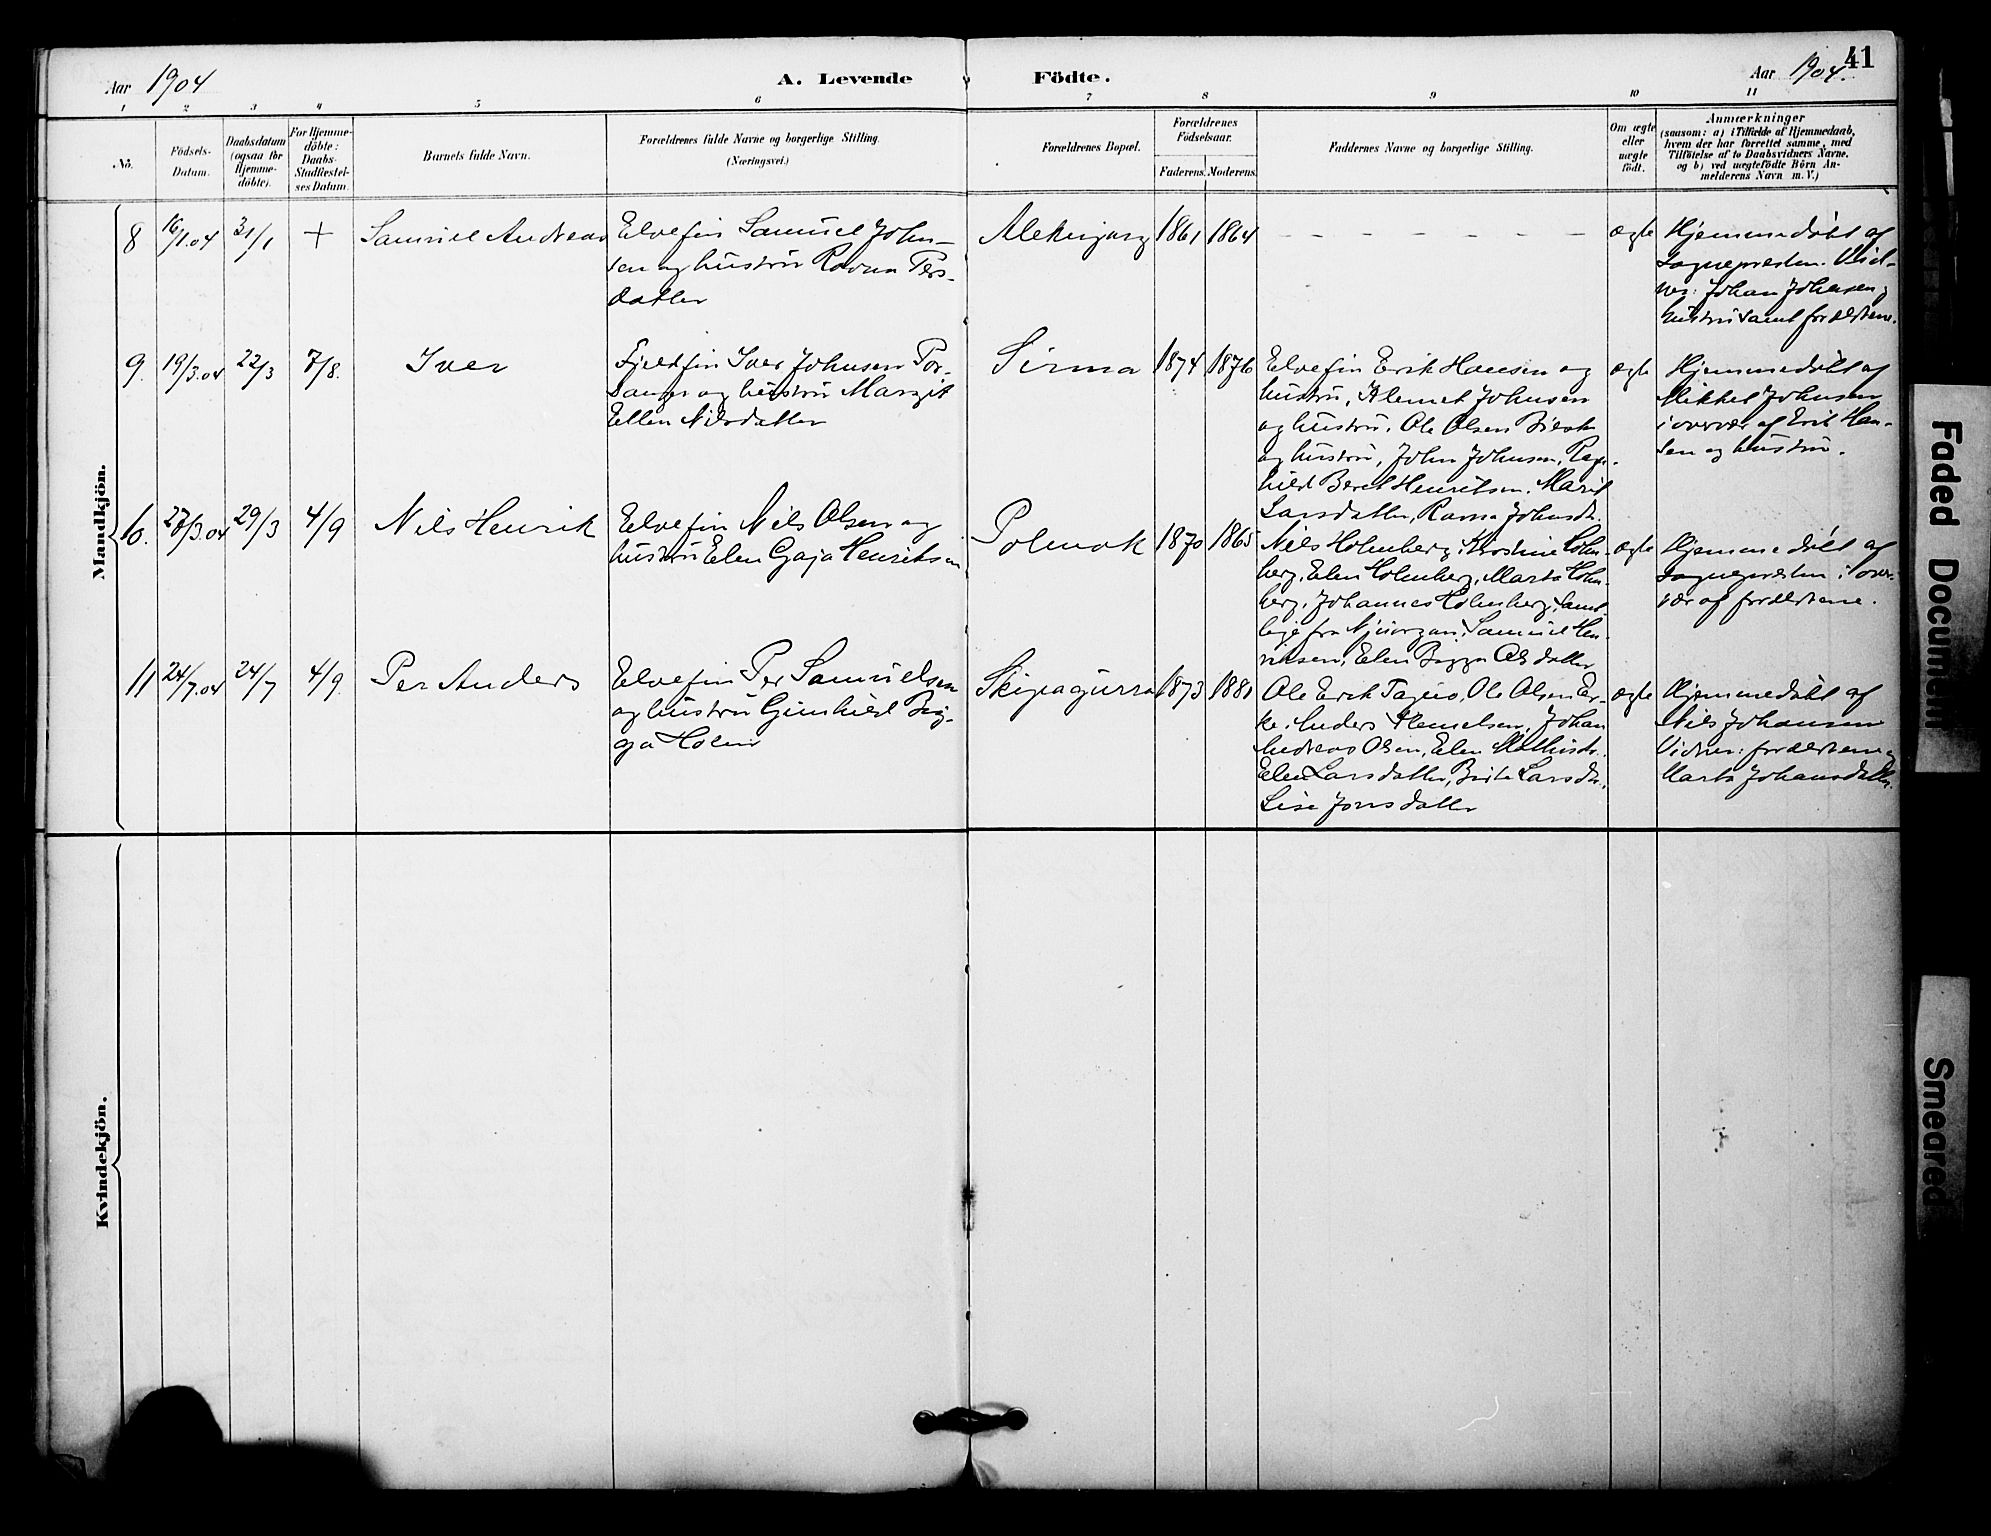 41
Aar 1904
A. Levende Födte.
Aar 1904.
1 2 3 4 5 6 7 8 9 10 11
No.
Födsels-
Datum.
Daabsdatum
(ogsaa for
Hjemme-
döbte).
For Hjemme-
döbte:
Daabs-
Stadfæstel-
ses Datum.
Barnets fulde Navn.
Forældrenes fulde Navne og borgerlige Stilling.
(Næringsvei.)
Forældrenes Bopæl.
Forældrenes
Födselsaar.
Faderens. Moderens.
Faddernes Navne og borgerlige Stilling.
Om ægte
eller
uægte
födt.
Anmærkninger
(saasom: a) i Tilfælde af Hjemmedaab,
hvem der har forrettet samme, med
Tilföielse af to Daabsvidners Navne,
og b) ved uægtefödte Börn An-
melderens Navn m. V.)
Mandkjön.
8 16/1.04 31/1 + Samuel Andreas
Elvefin Samuel John-
sen og hustru Ravna Pers-
datter
Aleknjarg 1861 1864
- - - - - - - -
ægte
Hjemmedöbt af
sognepresten. Vid-
ner: Johan Johnsen og
hustru samt forældrene.
9. 19/3.04 22/3 7/8. Iver
Fjeldfin Iver Johnsen Por-
sanger og hustru Margit
Ellen Nilsdatter
Sirma 1874 1876
Elvefin Erik Hansen og
hustru, Klemet Johnsen
og hustru, Ole Olsen
og hustru, John Johnsen, Rag-
hild Beret Henriksen. Marit
Larsdatter, Ravna Johnsdr.
ægte
Hjemmedöbt af
Mikkel Johnsen
i overvær af Erik Han-
sen og hustru.
10. 27/3.04 29/3 4/9 Nils Henrik
Elvefin Nils Olsen og
hustru Elen Gaja Henriksen
Polmak 1870 1865
Nils Holmberg, Kirstine Holm-
berg, Elen Holmberg, Marta Holm-
berg, Johannes Holmberg, samt-
lige fra Njuorgan, Samuel Hen-
riksen, Elen Bigga Olsdatter
ægte
Hjemmedöbt af
sognepresten i over-
vær af forældrene.
11 24/7.04 24/7 4/9. Per Anders
Elvefin Per Samuelsen
og hustru Gunhild Big-
ga Holm
Skipagurra 1873 1881
Ole Erik Tapio, Ole Olsen Er-
ke, Anders Klemetsen, Johan
Andreas Olsen, Elen Mathisdr.
Elen Larsdatter, Berit Larsdr.
Lise Jonsdatter
ægte
Hjemmedöbt af
Nils Johansen
Vidner: forældrene og
Marta Johansdatter.
Kvindekjön.
Faded Document
Smeared